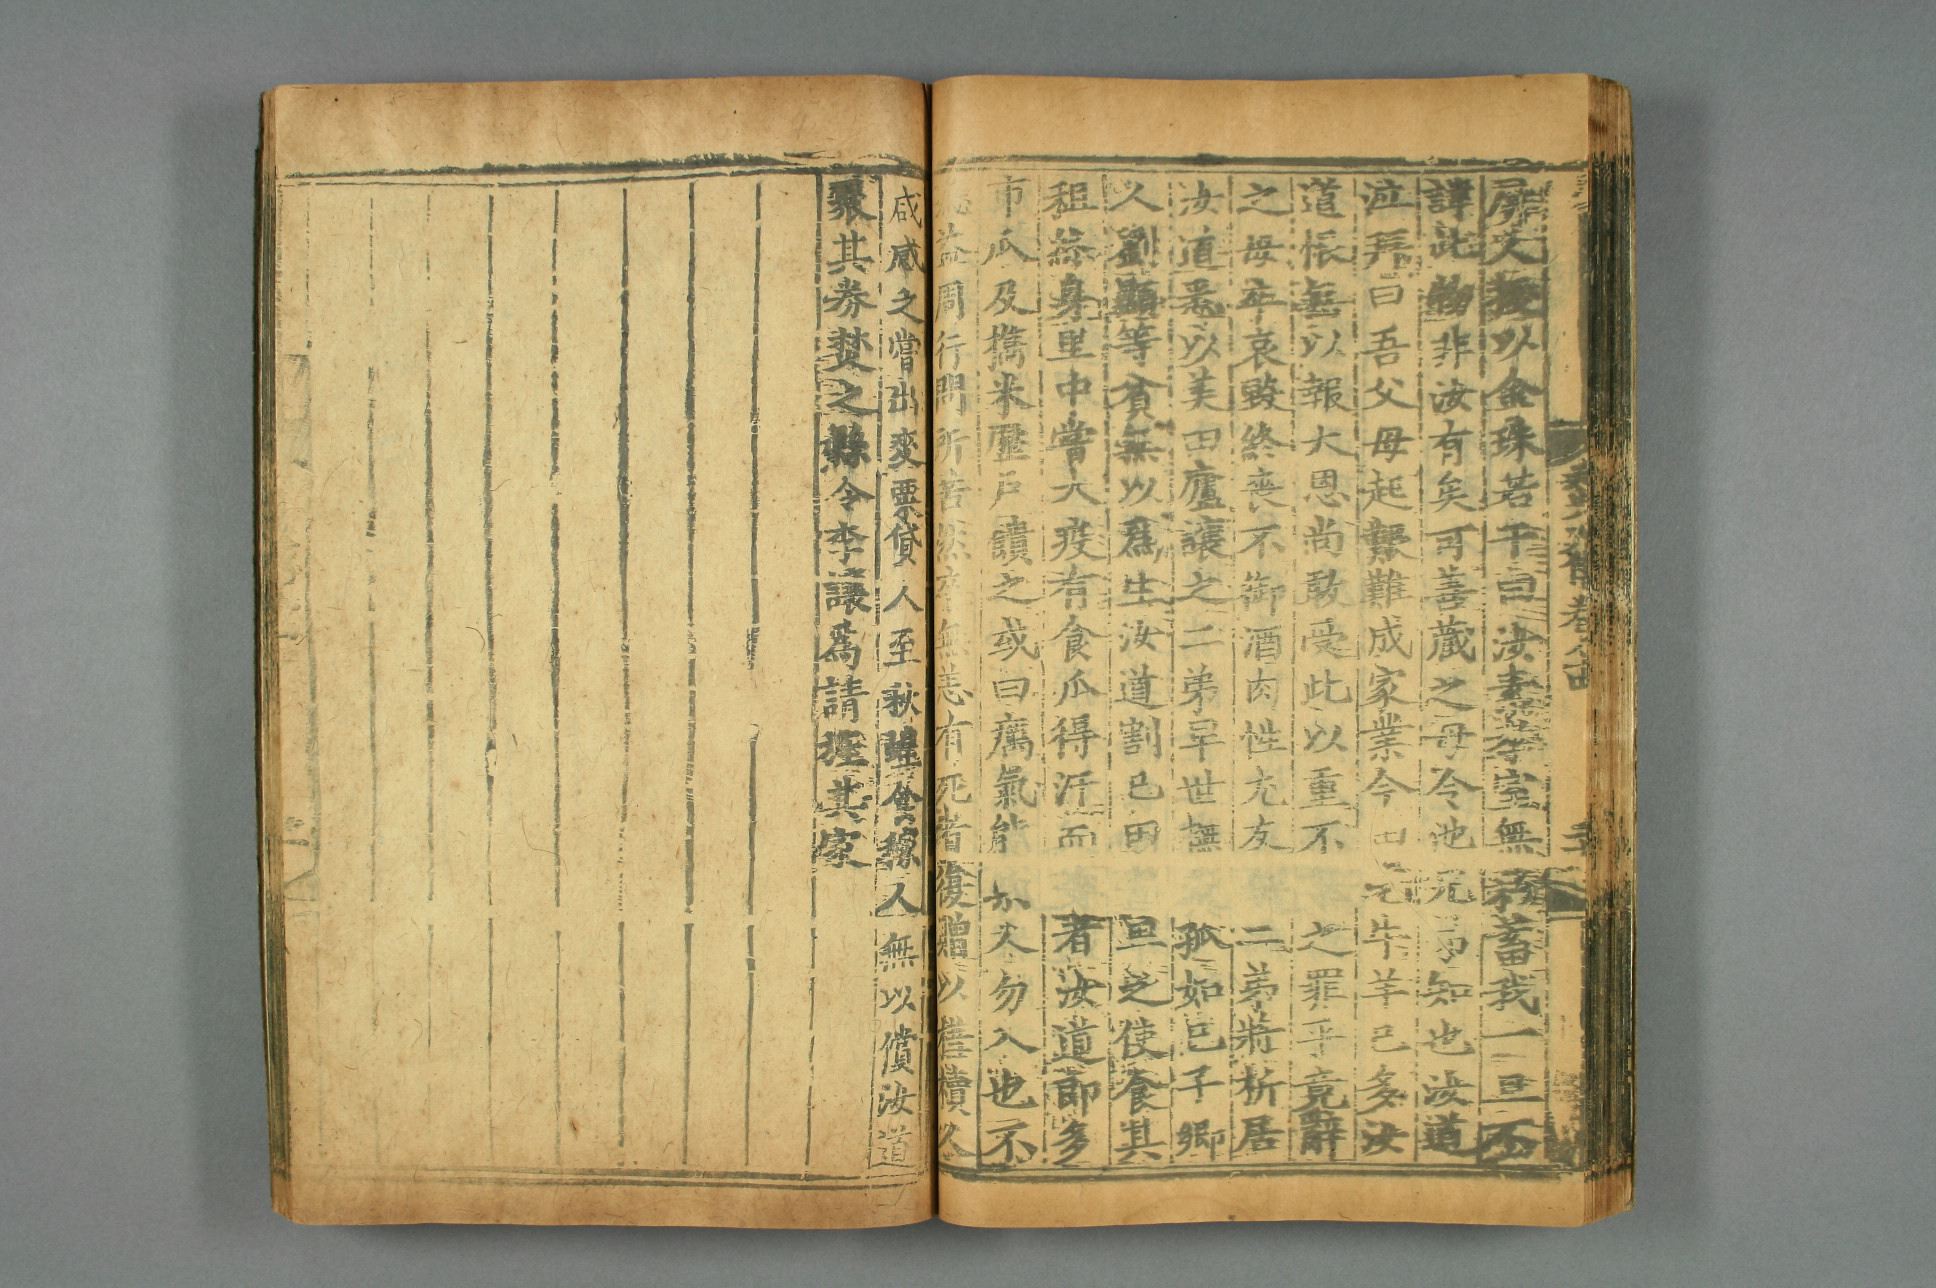 屏人授以金珠若干曰汝素孝室無私蓄我一旦不
諱此物非汝有矣可善藏之毋令他兄弟知也汝道
泣拜曰吾父母起艱難成家業今田宅牛羊已多汝
道恨無以報大恩尚敢受此以重不之罪乎竟辭
之母卒哀毀終喪不御酒肉性尤友二弟將析居
汝道悉以美田廬讓之二弟早世撫孤如己子鄉
人劉顯等貧無以爲生汝道割己田畀之使食其
租終身里中嘗大疫有食瓜得汗而者汝道即多
市瓜及携米歷戶饋之或曰癘氣能人勿入也不
益周行問所苦然卒無恙有死者復贈以槥櫝人
咸感之嘗出麥粟貸人至秋蝗食稼人無以償汝道
聚其券焚之縣令李讓爲請旌其家